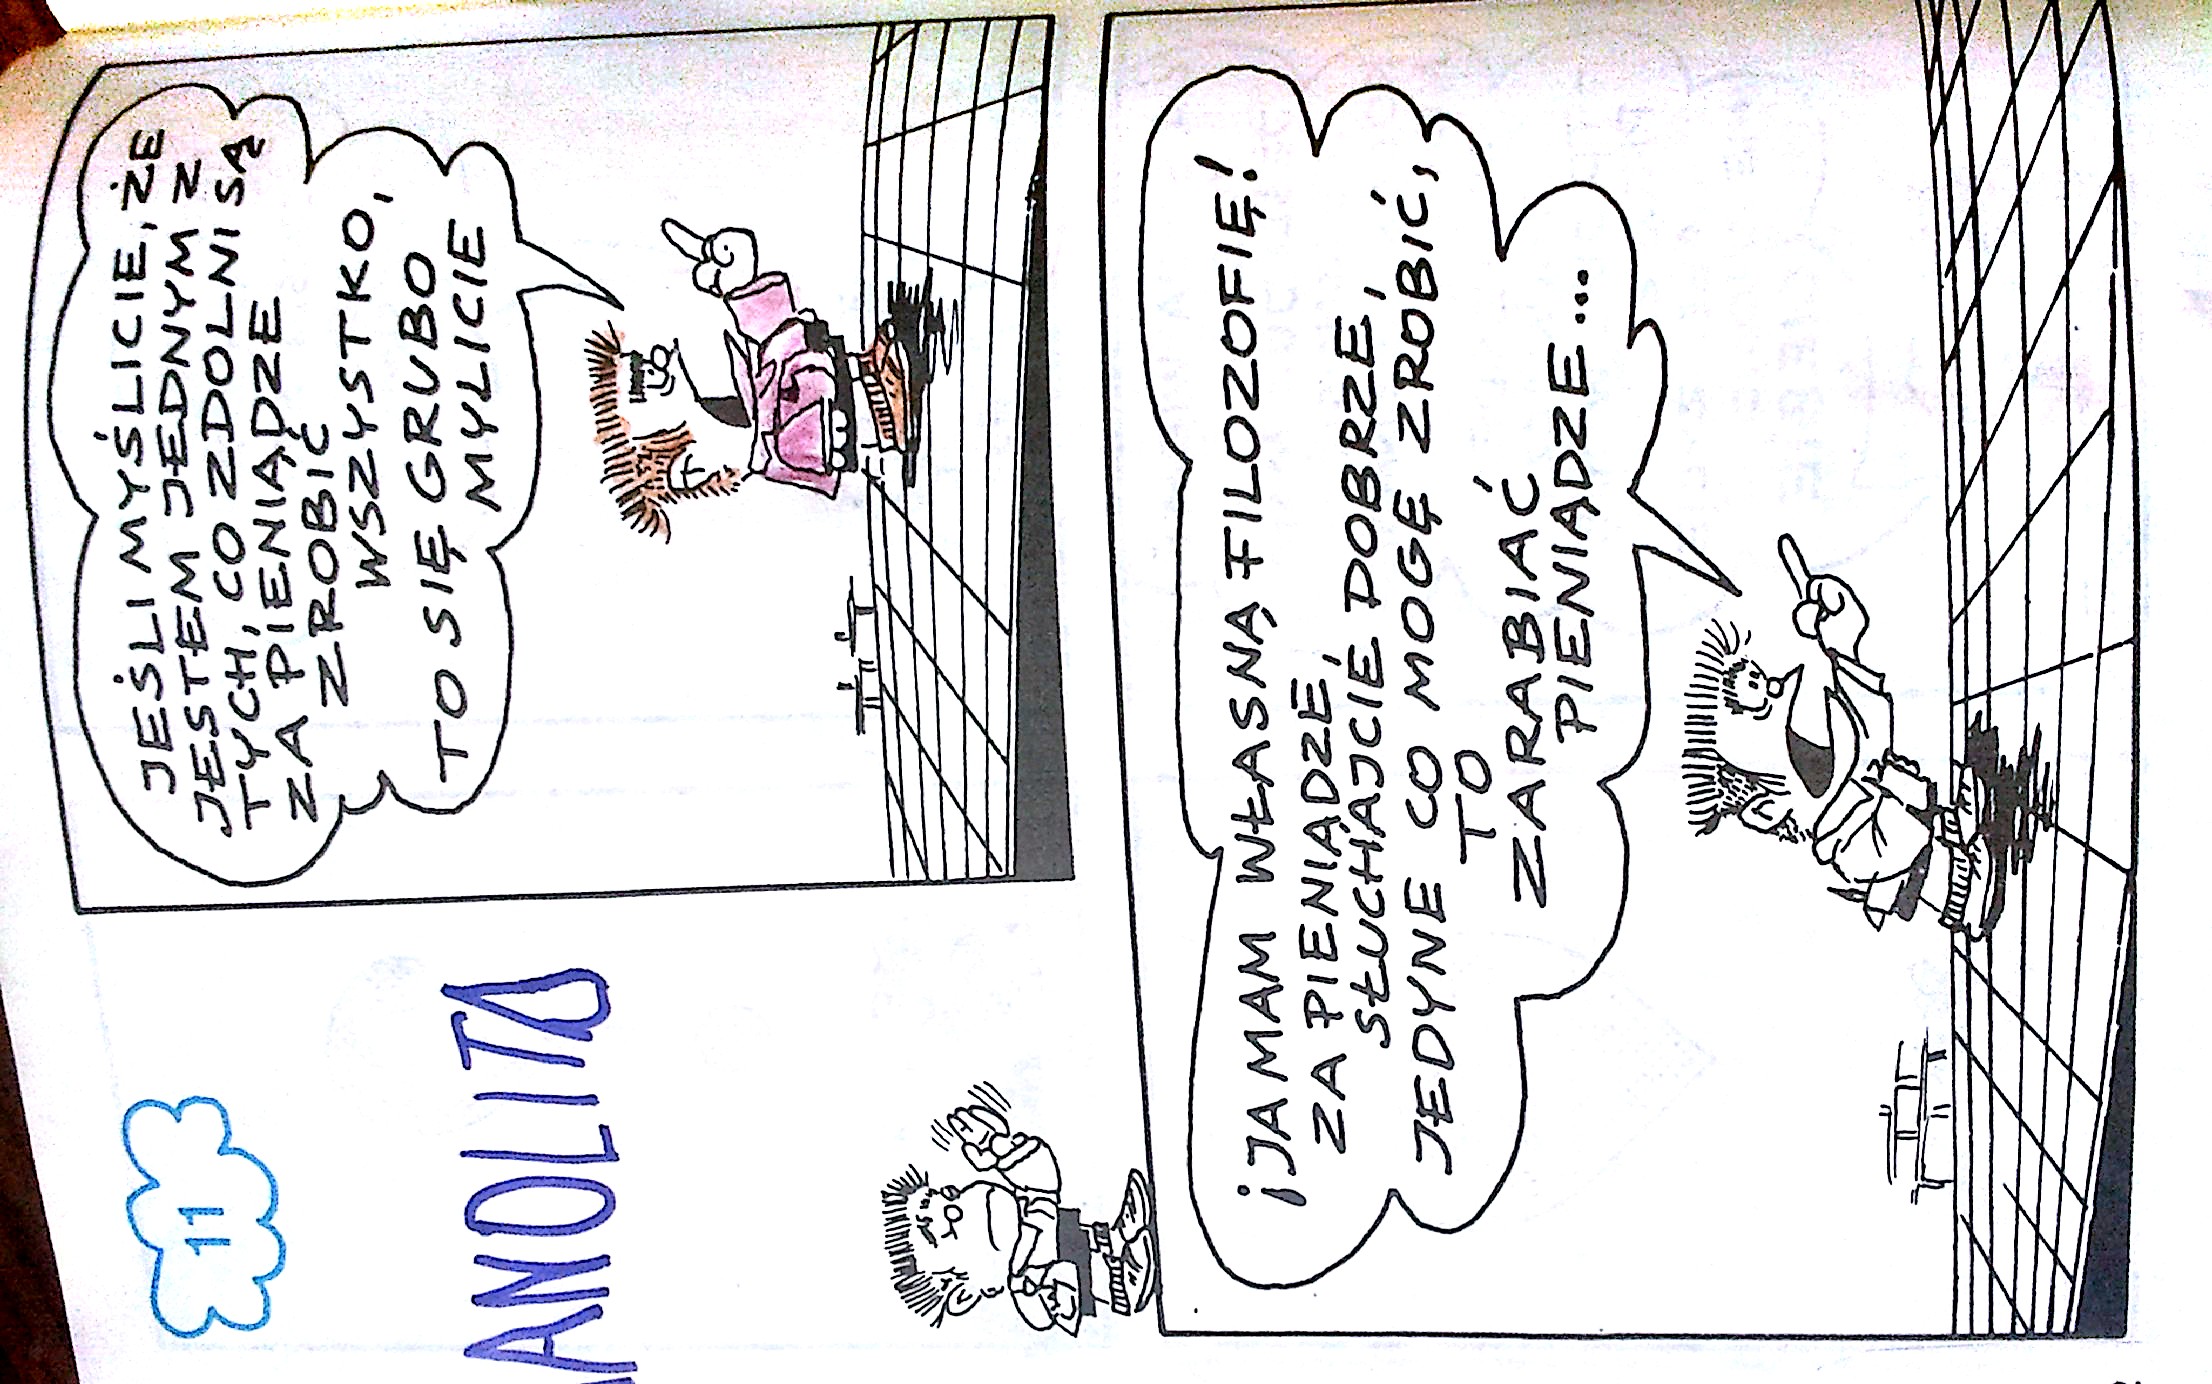 11
ANOLITO
JEŚLI MYŚLICIE, ŻE
JESTEM JEDNYM Z
TYCH, CO ZDOLNI SĄ
ZA PIENIĄDZE
ZROBIĆ
WSZYSTKO,
TO SIĘ GRUBO
MYLICIE
¡JA MAM WŁASNĄ FILOZOFIĘ!
ZA PIENIĄDZE,
SŁUCHAJCIE DOBRZE,
JEDYNE CO MOGĘ ZROBIĆ,
TO
ZARABIAĆ
PIENIĄDZE...